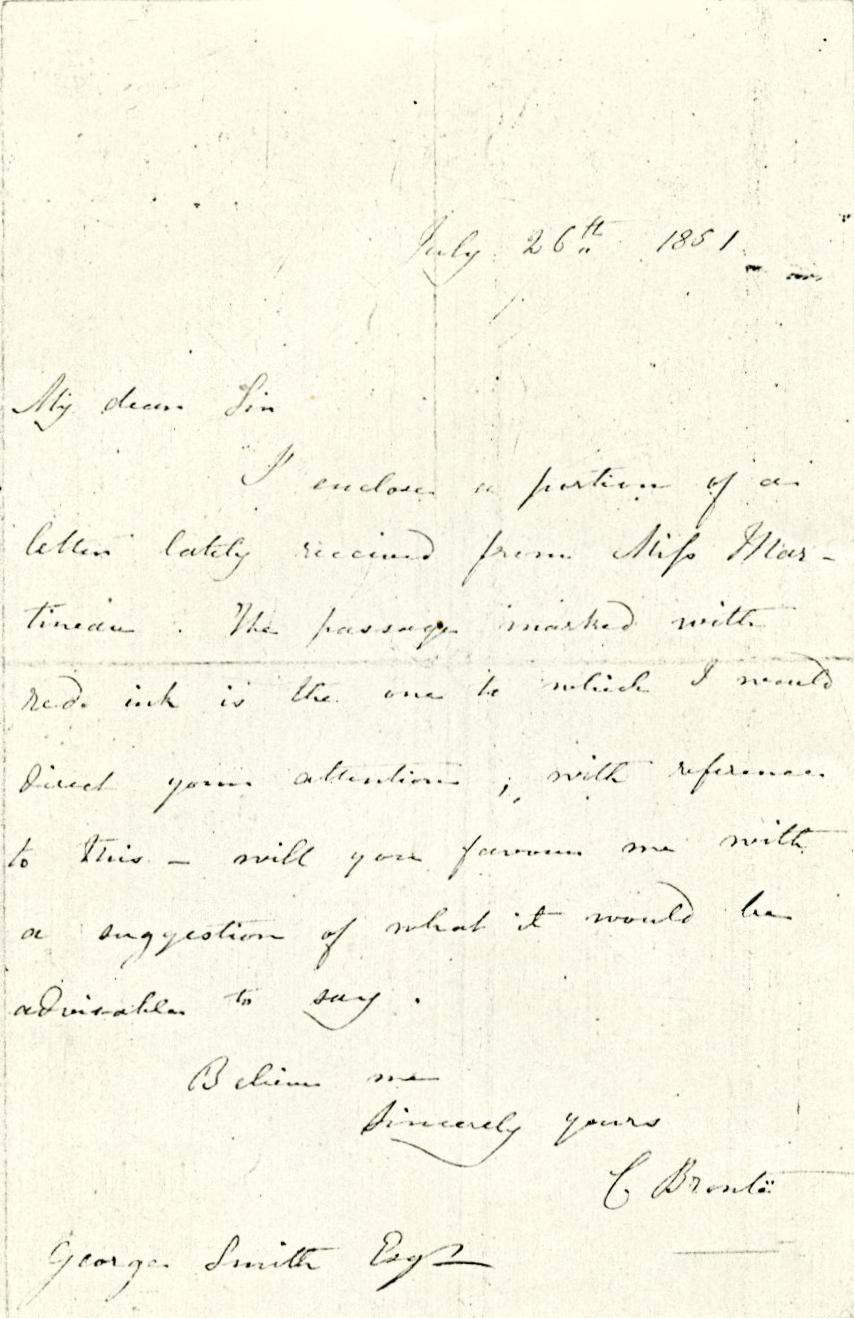 July 26th 1851
My dear Sir
I enclose a portion of a
letter lately received from Miss Mar-
tineau. The passage marked with
red ink is the one to which I would
direct your attention; with reference
to this – will you favour me with
a suggestion of what it would be
advisable to say.
Believe me
Sincerely yours
C Brontë
George Smith Esqr